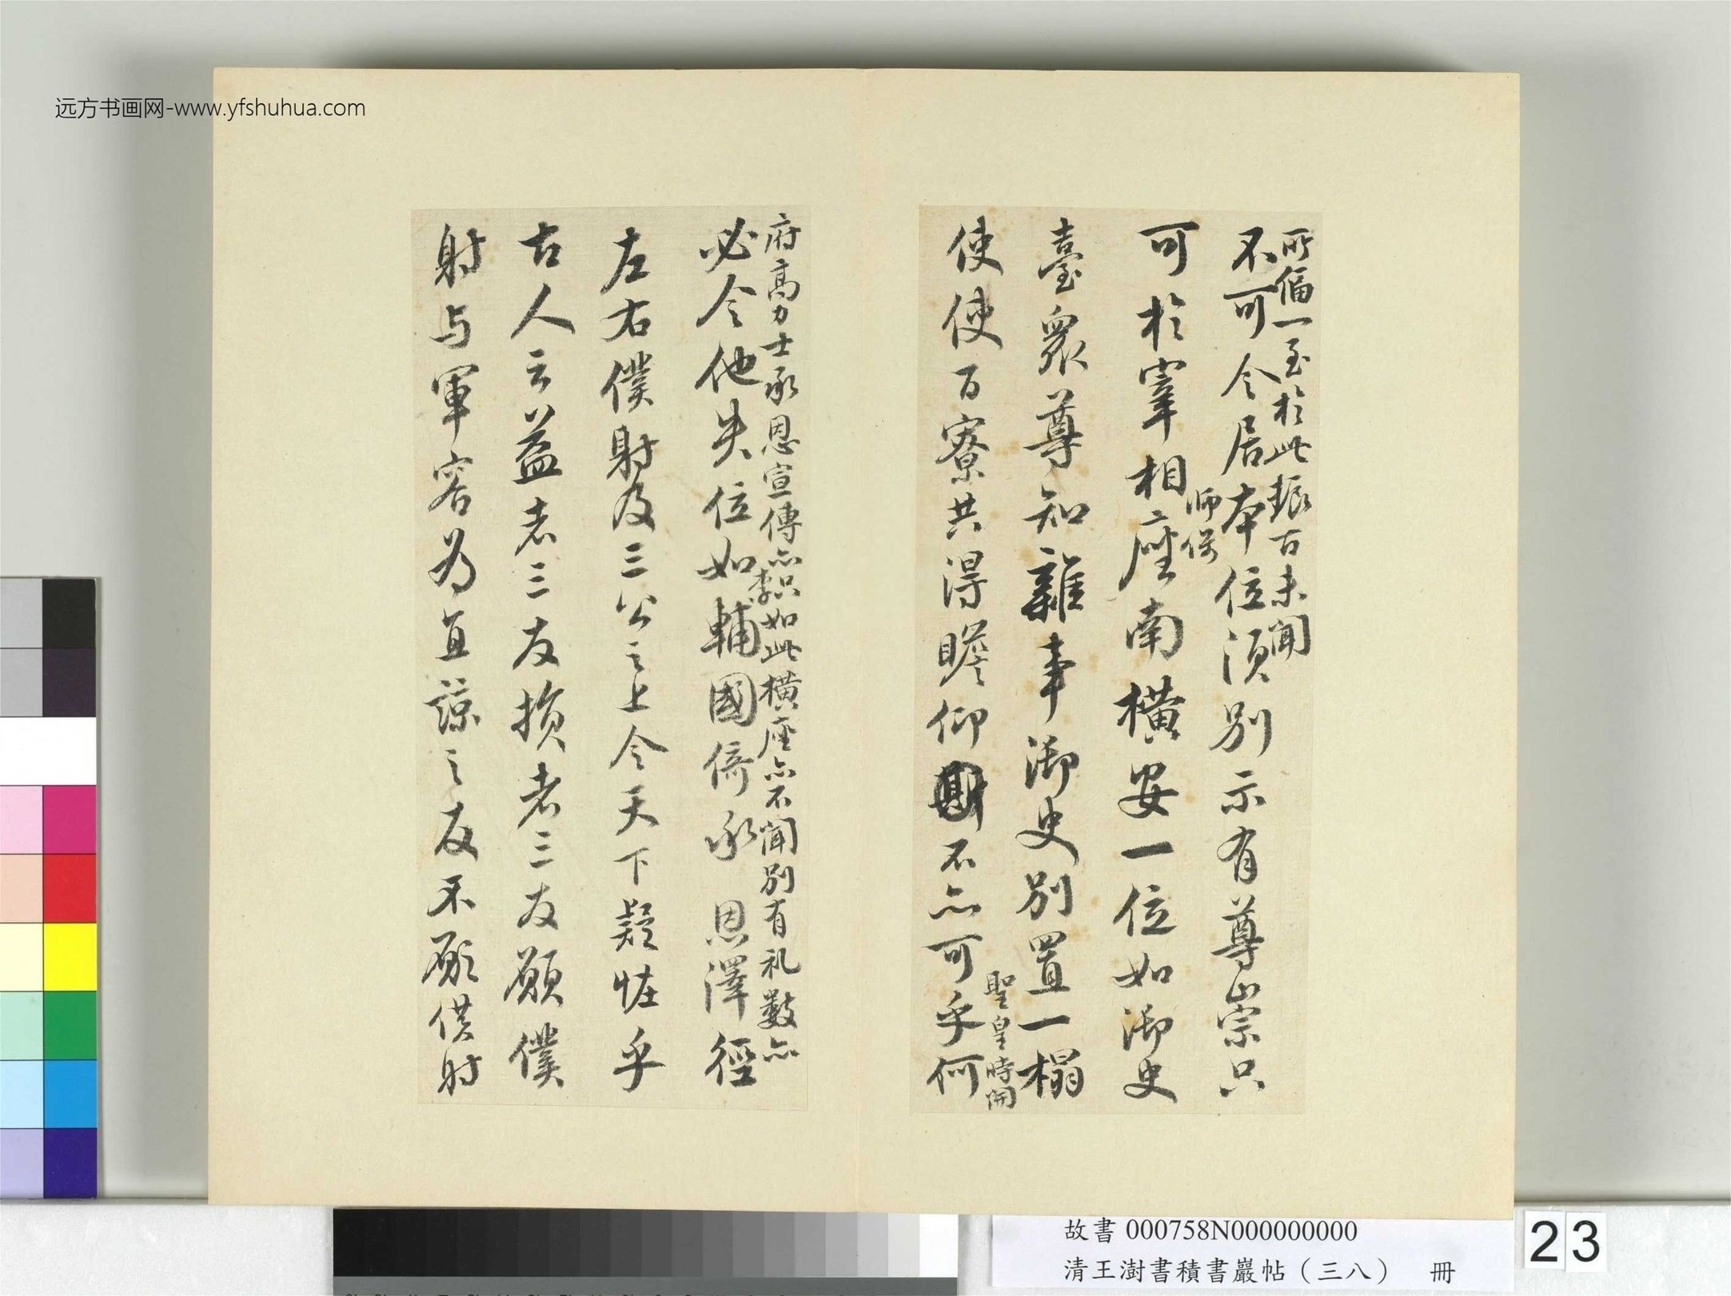 远方书画网-www.yfshuhua.com
所偏一至於此振古未聞
不可令居本位須別示有尊崇只
師保
可於宰相座南橫安一位如御史
臺衆尊知雜事御史別置一榻
聖皇時開
使使百寮共得瞻仰不亦可乎何
府高力士承恩宣傳亦只如此橫座亦不聞別有礼數亦
李
必令他失位如輔國倚承恩澤徑
左右僕射及三公之上令天下疑恠乎
古人云益者三友損者三友願僕
射与軍容為直諒之友不願僕射
故書 000758N000000000
清王澍書積書巖帖（三八） 冊
23